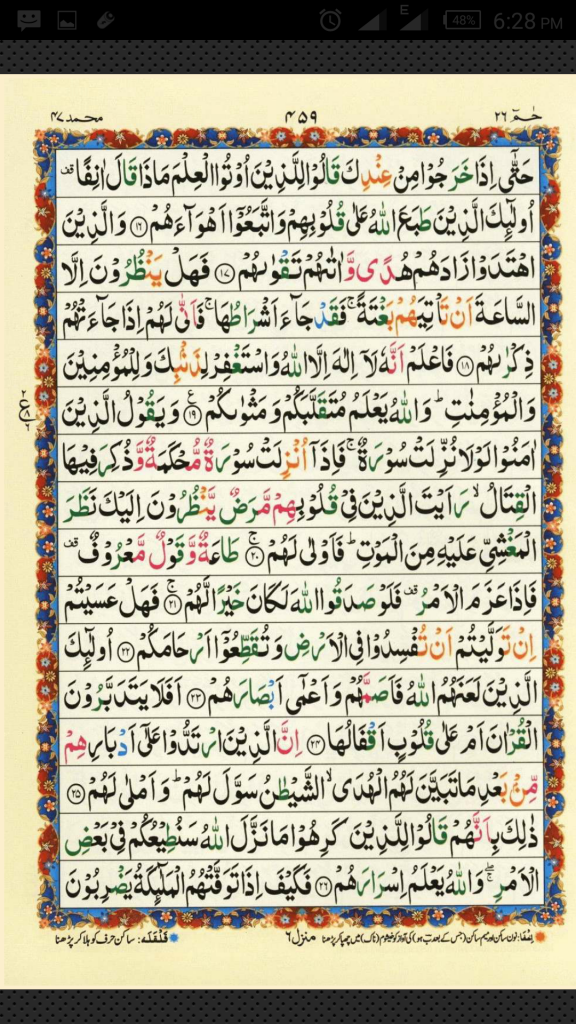 48%
6:28 PM
E
حٰمٓ ۲۶
۴۵۹
محمد ۴۷
حَتّٰۤى اِذَا خَرَجُوْا مِنْ عِنْدِكَ قَالُوْا لِلَّذِيْنَ اُوْتُوا الْعِلْمَ مَاذَا قَالَ اٰنِفًا
اُولٰٓئِكَ الَّذِيْنَ طَبَعَ اللّٰهُ عَلٰى قُلُوْبِهِمْ وَاتَّبَعُوْۤا اَهْوَآءَهُمْ ﴿۱۶﴾ وَالَّذِيْنَ
اهْتَدَوْا زَادَهُمْ هُدًى وَّاٰتٰىهُمْ تَقْوٰىهُمْ ﴿۱۷﴾ فَهَلْ يَنْظُرُوْنَ اِلَّا
السَّاعَةَ اَنْ تَاْتِيَهُمْ بَغْتَةً ۚ فَقَدْ جَآءَ اَشْرَاطُهَا ۚ فَاَنّٰى لَهُمْ اِذَا جَآءَتْهُمْ
ذِكْرٰىهُمْ ﴿۱۸﴾ فَاعْلَمْ اَنَّهٗ لَاۤ اِلٰهَ اِلَّا اللّٰهُ وَاسْتَغْفِرْ لِذَنْۢبِكَ وَلِلْمُؤْمِنِيْنَ
وَالْمُؤْمِنٰتِ ؕ وَاللّٰهُ يَعْلَمُ مُتَقَلَّبَكُمْ وَمَثْوٰىكُمْ ﴿۱۹﴾ وَيَقُوْلُ الَّذِيْنَ
اٰمَنُوْا لَوْلَا نُزِّلَتْ سُوْرَةٌ ۚ فَاِذَاۤ اُنْزِلَتْ سُوْرَةٌ مُّحْكَمَةٌ وَّذُكِرَ فِيْهَا
الْقِتَالُ ۙ رَاَيْتَ الَّذِيْنَ فِيْ قُلُوْبِهِمْ مَّرَضٌ يَّنْظُرُوْنَ اِلَيْكَ نَظَرَ
الْمَغْشِيِّ عَلَيْهِ مِنَ الْمَوْتِ ؕ فَاَوْلٰى لَهُمْ ﴿۲۰﴾ طَاعَةٌ وَّقَوْلٌ مَّعْرُوْفٌ
فَاِذَا عَزَمَ الْاَمْرُ فَلَوْ صَدَقُوا اللّٰهَ لَكَانَ خَيْرًا لَّهُمْ ﴿۲۱﴾ فَهَلْ عَسَيْتُمْ
اِنْ تَوَلَّيْتُمْ اَنْ تُفْسِدُوْا فِي الْاَرْضِ وَتُقَطِّعُوْۤا اَرْحَامَكُمْ ﴿۲۲﴾ اُولٰٓئِكَ
الَّذِيْنَ لَعَنَهُمُ اللّٰهُ فَاَصَمَّهُمْ وَاَعْمٰۤى اَبْصَارَهُمْ ﴿۲۳﴾ اَفَلَا يَتَدَبَّرُوْنَ
الْقُرْاٰنَ اَمْ عَلٰى قُلُوْبٍ اَقْفَالُهَا ﴿۲۴﴾ اِنَّ الَّذِيْنَ ارْتَدُّوْا عَلٰۤى اَدْبَارِهِمْ
مِّنْۢ بَعْدِ مَا تَبَيَّنَ لَهُمُ الْهُدَى ۙ الشَّيْطٰنُ سَوَّلَ لَهُمْ ؕ وَاَمْلٰى لَهُمْ ﴿۲۵﴾
ذٰلِكَ بِاَنَّهُمْ قَالُوْا لِلَّذِيْنَ كَرِهُوْا مَا نَزَّلَ اللّٰهُ سَنُطِيْعُكُمْ فِيْ بَعْضِ
الْاَمْرِ ۚ وَاللّٰهُ يَعْلَمُ اِسْرَارَهُمْ ﴿۲۶﴾ فَكَيْفَ اِذَا تَوَفَّتْهُمُ الْمَلٰٓئِكَةُ يَضْرِبُوْنَ
اِخفا: نون ساکن اور میم ساکن (جس کے بعد ب ہو) کی آواز کو خیشوم (ناک) میں چھپا کر پڑھنا
منزل ۶
قَلقَلَه: ساکن حرف کو ہلا کر پڑھنا